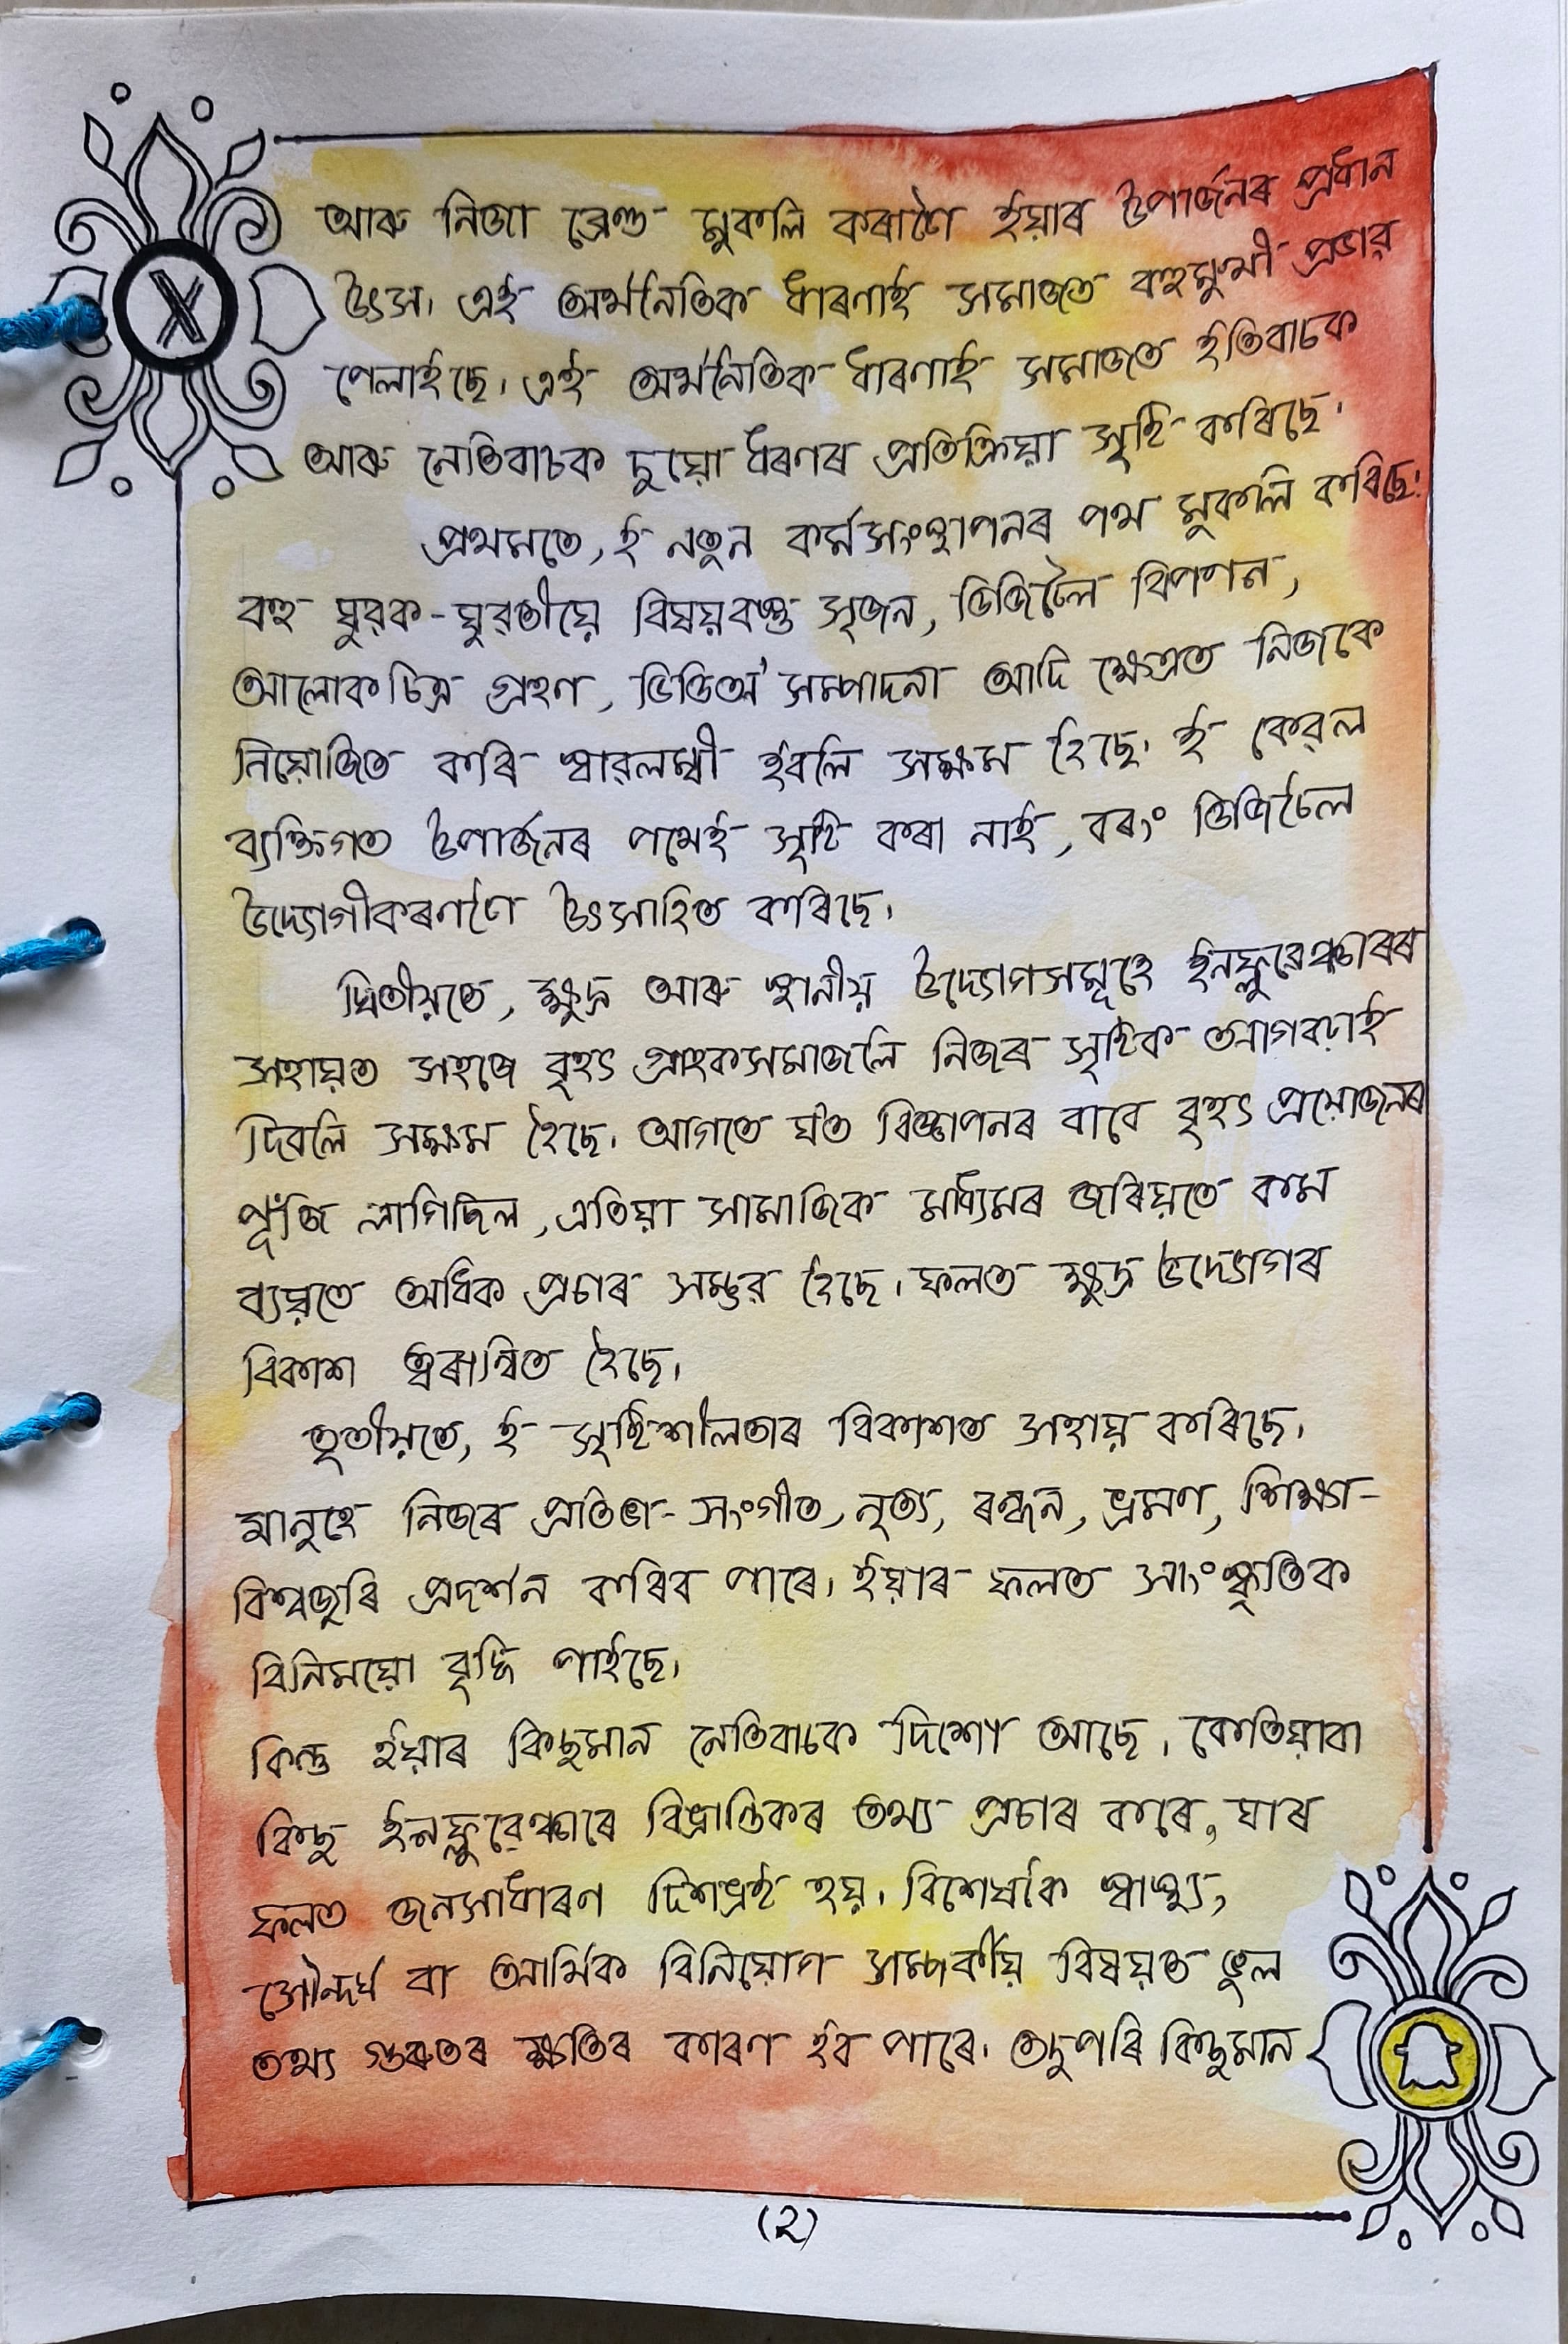 আৰু নিজা ব্ৰেণ্ড মুকলি কৰাটোৱে ইয়াৰ উপাৰ্জনৰ প্ৰধান
উৎস। এই অৰ্থনৈতিক ধাৰণাই সমাজত বহুমুখী প্ৰভাৱ
পেলাইছে। এই অৰ্থনৈতিক ধাৰণাই সমাজত ইতিবাচক
আৰু নেতিবাচক দুয়ো ধৰণৰ প্ৰতিক্ৰিয়া সৃষ্টি কৰিছে।
প্ৰথমতে, ই নতুন কৰ্মসংস্থাপনৰ পথ মুকলি কৰিছে।
বহু যুৱক-যুৱতীয়ে বিষয়বস্তু সৃজন, ডিজিটেল বিপণন,
আলোকচিত্ৰ গ্ৰহণ, ভিডিঅ' সম্পাদনা আদি ক্ষেত্ৰত নিজকে
নিয়োজিত কৰি স্বাৱলম্বী হ'বলৈ সক্ষম হৈছে। ই কেৱল
ব্যক্তিগত উপাৰ্জনৰ পথেই সৃষ্টি কৰা নাই, বৰং ডিজিটেল
উদ্যোগীকৰণকো উৎসাহিত কৰিছে।
দ্বিতীয়তে, ক্ষুদ্ৰ আৰু স্থানীয় উদ্যোগসমূহে ইনফ্লুৱেঞ্চাৰৰ
সহায়ত সহজে বৃহৎ গ্ৰাহকসমাজলৈ নিজৰ সৃষ্টিক আগবঢ়াই
দিবলৈ সক্ষম হৈছে। আগতে য'ত বিজ্ঞাপনৰ বাবে বৃহৎ প্ৰয়োজনৰ
পূঁজি লাগিছিল, এতিয়া সামাজিক মাধ্যমৰ জৰিয়তে কম
ব্যয়তে অধিক প্ৰচাৰ সম্ভৱ হৈছে। ফলত ক্ষুদ্ৰ উদ্যোগৰ
বিকাশ ত্বৰান্বিত হৈছে।
তৃতীয়তে, ই সৃষ্টিশীলতাৰ বিকাশত সহায় কৰিছে।
মানুহে নিজৰ প্ৰতিভা- সংগীত, নৃত্য, ৰন্ধন, ভ্ৰমণ, শিক্ষা-
বিশ্বজুৰি প্ৰদৰ্শন কৰিব পাৰে। ইয়াৰ ফলত সাংস্কৃতিক
বিনিময়ো বৃদ্ধি পাইছে।
কিন্তু ইয়াৰ কিছুমান নেতিবাচক দিশো আছে। কেতিয়াবা
কিছু ইনফ্লুৱেঞ্চাৰে বিভ্ৰান্তিকৰ তথ্য প্ৰচাৰ কৰে, যাৰ
ফলত জনসাধাৰণ দিশভ্ৰষ্ট হয়। বিশেষকৈ স্বাস্থ্য,
সৌন্দৰ্য বা আৰ্থিক বিনিয়োগ সম্পৰ্কীয় বিষয়ত ভুল
তথ্য গুৰুতৰ ক্ষতিৰ কাৰণ হ'ব পাৰে। তদুপৰি কিছুমান
(২)